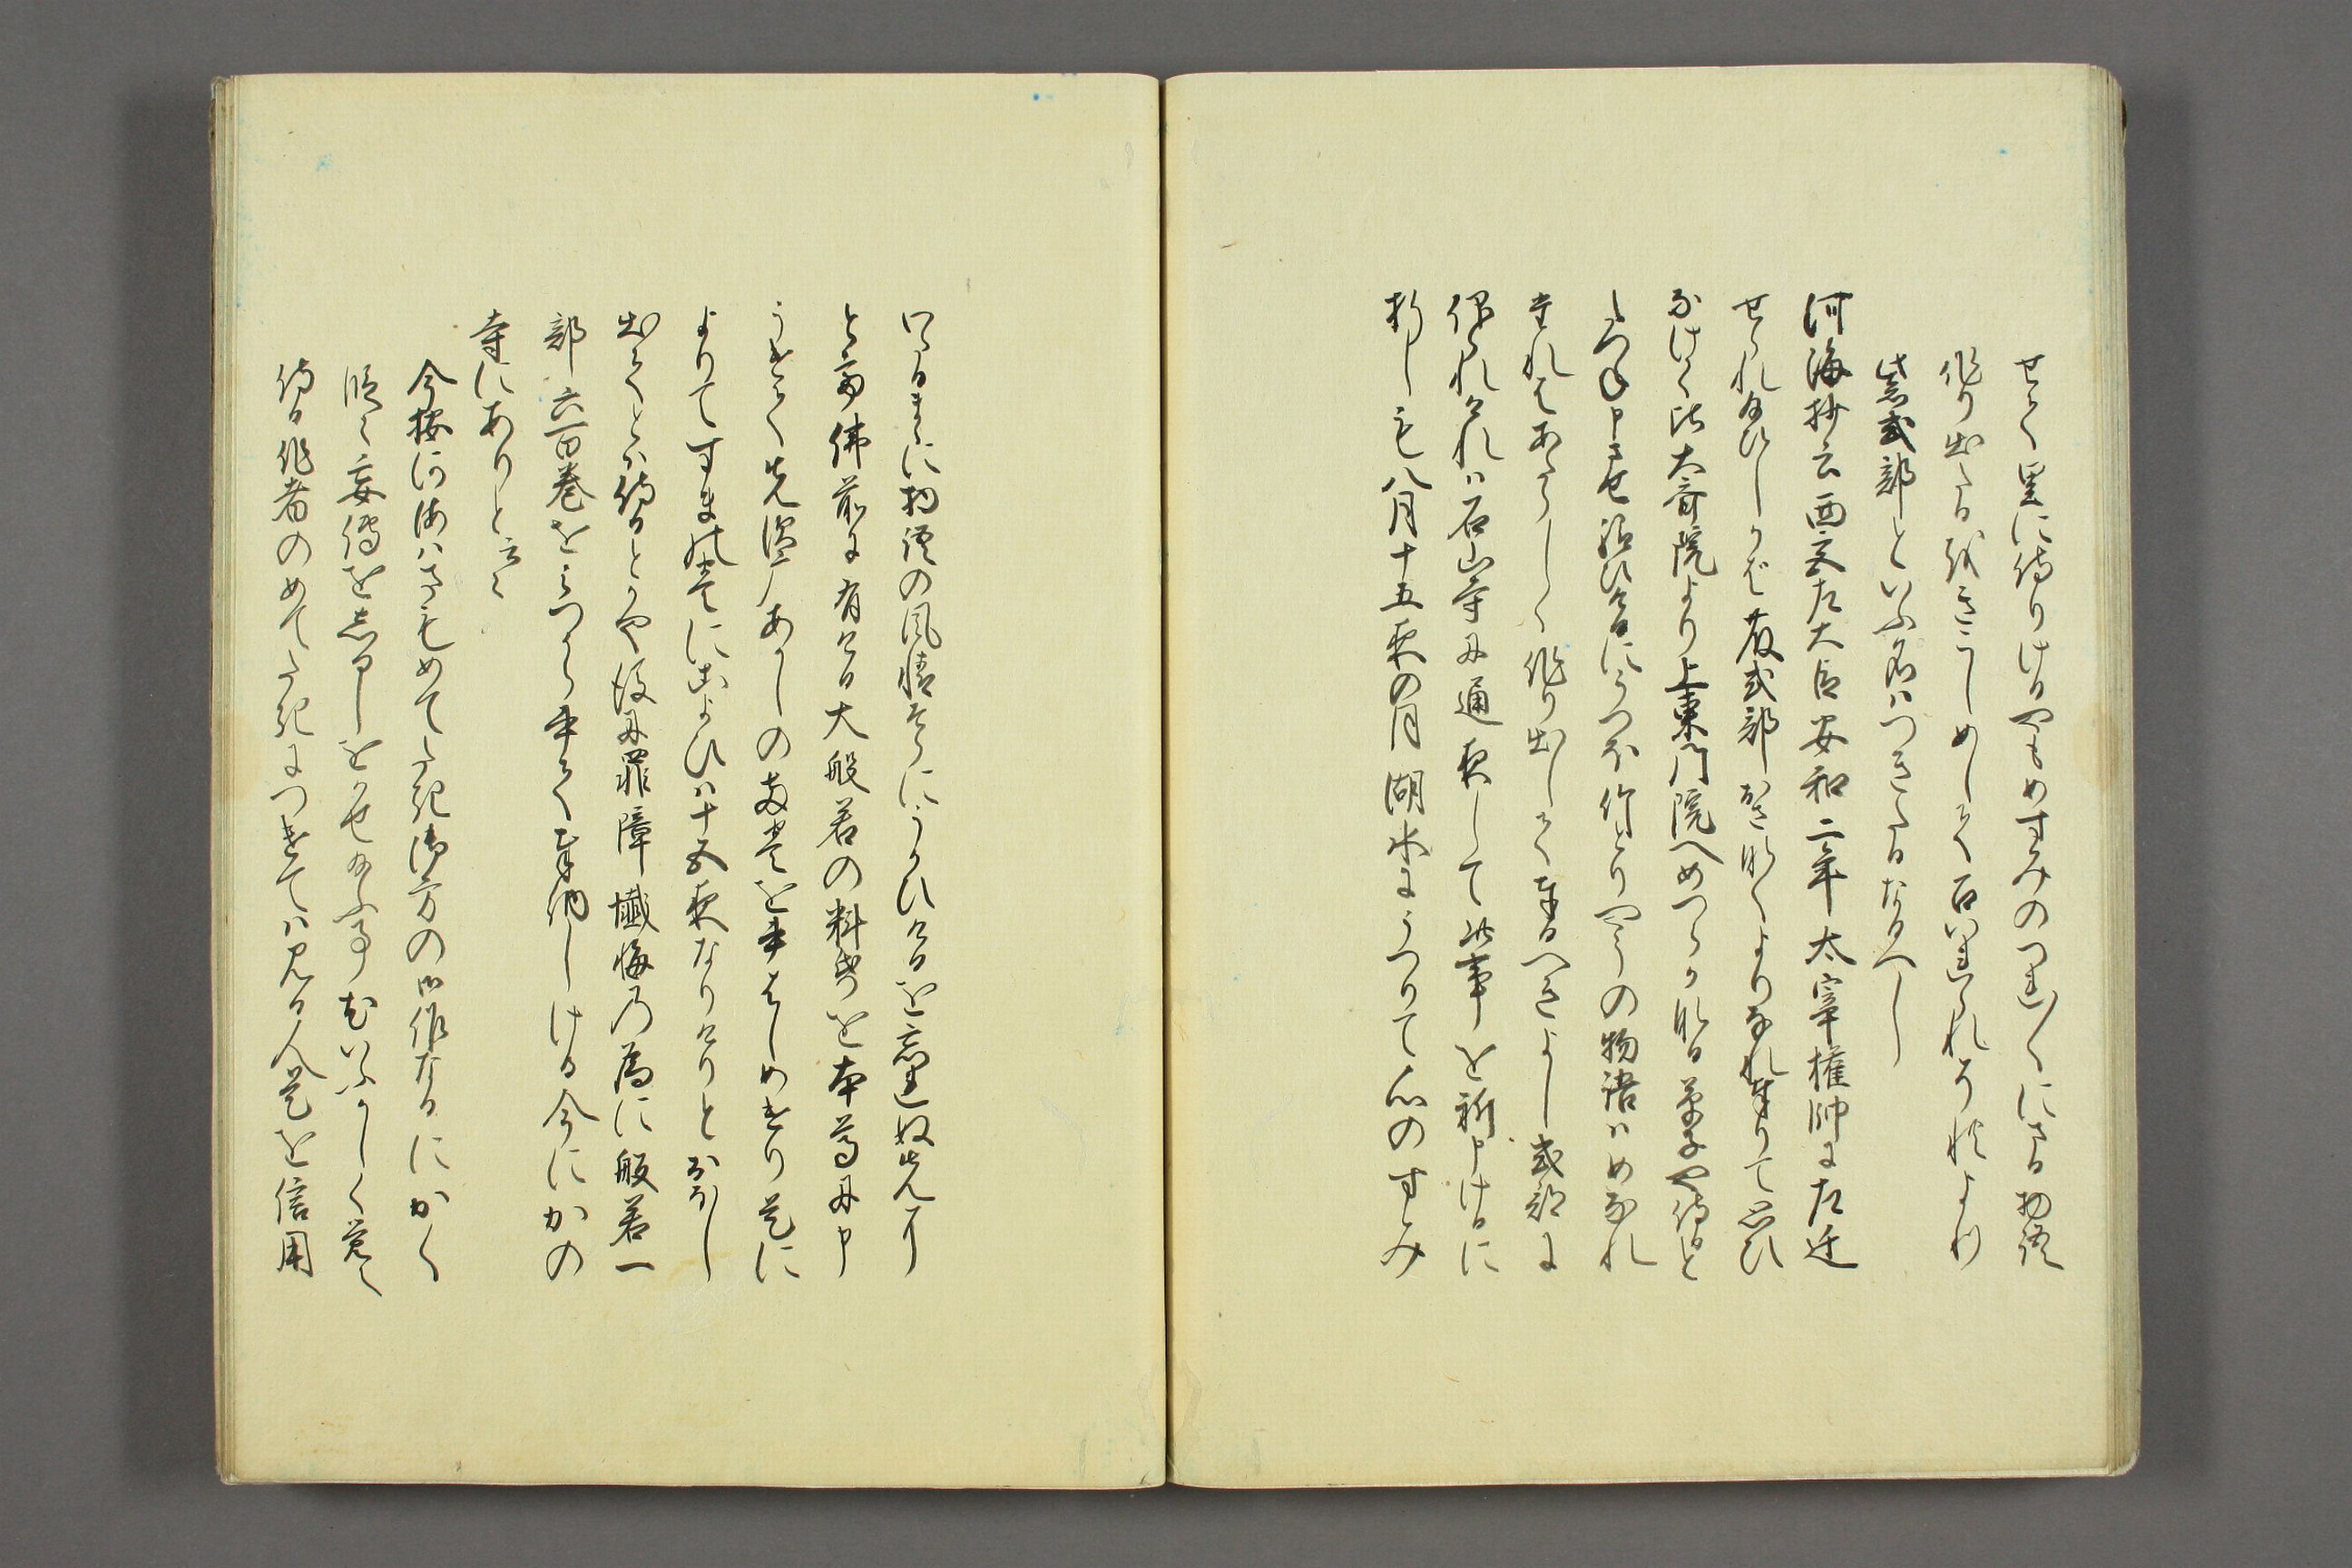 せて里に侍りけるやもめすみのつれ〱にさる物語
作り出たるをきこしめしてめしいたされそれより
紫式部といふ名はつきたるなるへし
河海抄云西宮左大臣安和二年太宰権帥に左迁
せられ給ひしかは藤式部おさなくよりなれ奉りて思ひ
なけく比大斎院より上東門院へめつらかなる草子や侍ると
しつね申させ給ひけるにうつほ竹とりやうの物語はめなれ
たれはあたらしく作り出してたてまつるへきよし式部に
仰られけれは石山寺に通夜して此事を祈申けるに
折しも八月十五夜の月湖水にうつりて心のすみ
わたるまゝに物語の風情空にうかひけるを忘れぬ先に
とて仏前に有ける大般若の料帋を本尊に申
うけて先須广あかしの両巻を書はしめけり是に
よりてすまの巻にこよひは十五夜なりけりとおほし
出てとは侍るとかや後に罪障懺悔の為に般若一
部六百巻をみつから書て奉納しける今にかの
寺にありと云々
今按河海はさもめてたき御方の御作なるにかく
浅〻妄傳を志るしをかせ給ふ事いふかしく覚
侍る作者のめてたきにつけては見る人是を信用